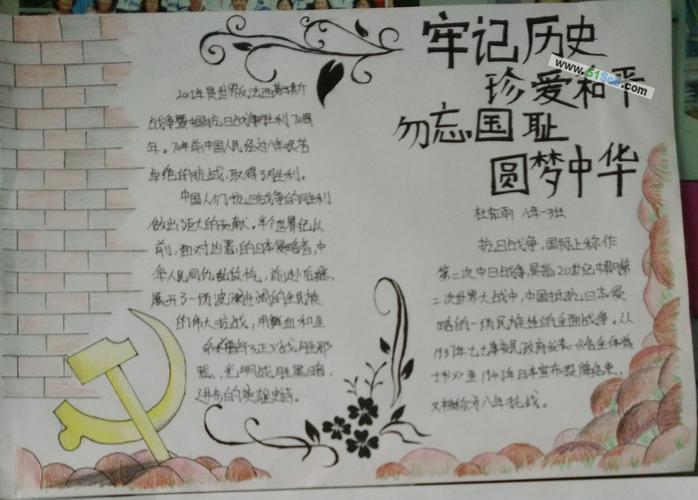 牢记历史
珍爱和平
勿忘国耻
圆梦中华
www.51Sc
杜 雨 八年一班
2015年是世界反法西斯
战争暨中国抗日战争胜利70周
年。70年前中国人民经过八年艰苦
卓绝的抗战,取得了胜利。
中国人们为抗日战争的胜利
做出了巨大的贡献。半个世纪以
前,面对凶恶的日本侵略者,中
华人民同仇敌忾抗,前赴后继,
展开了一场波澜壮阔的全民族
的伟大抗战,用鲜血和生
命 了正义战胜邪
恶,光明战胜黑暗,
进步的英雄史诗。
抗日战争,国际上称作
第二次中日战争,是指20世纪中期第
二次世界大战中,中国抵抗日本侵
略的一场民族性的全面战争。从
1937年七七事 国民政府发表《告全体将
士书》至1945年日本宣布投降结束,
又被称为八年抗战。